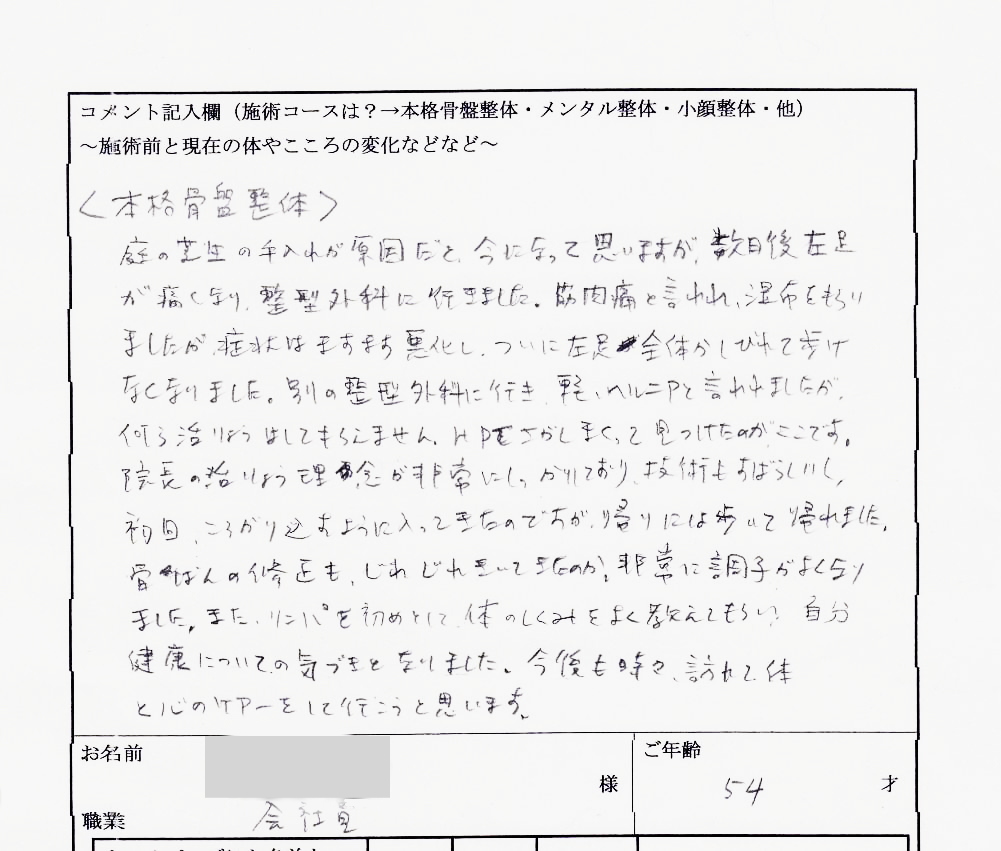 コメント記入欄（施術コースは？→本格骨盤整体・メンタル整体・小顔整体・他）
～施術前と現在の体やこころの変化などなど～
〈本格骨盤整体〉
庭の芝生の手入れが原因だと、今になって思いますが、数日後左足
が痛くなり、整型外科に行きました。筋肉痛と言われ、湿布をもらい
ましたが、症状はますます悪化し、ついに左足全体がしびれて歩け
なくなりました。別の整型外科に行き、軽いヘルニアと言われましたが、
何ら治りょうはしてもらえません。HPをさがしまくって見つけたのがここです。
院長の治りょう理念が非常にしっかりしており、技術もすばらしいし、
初回、ころがり込むように入ってきたのですが、帰りには歩いて帰れました。
骨ばんの修正も、じわじわきいてきたのか、非常に調子がよくなり
ました。また、リンパを初めとして、体のしくみをよく教えてもらい、自分
健康についての気づきとなりました。今後も時々、訪れて、体
と心のケアーをして行こうと思います。
お名前
様
ご年齢
54
才
職業
会社員